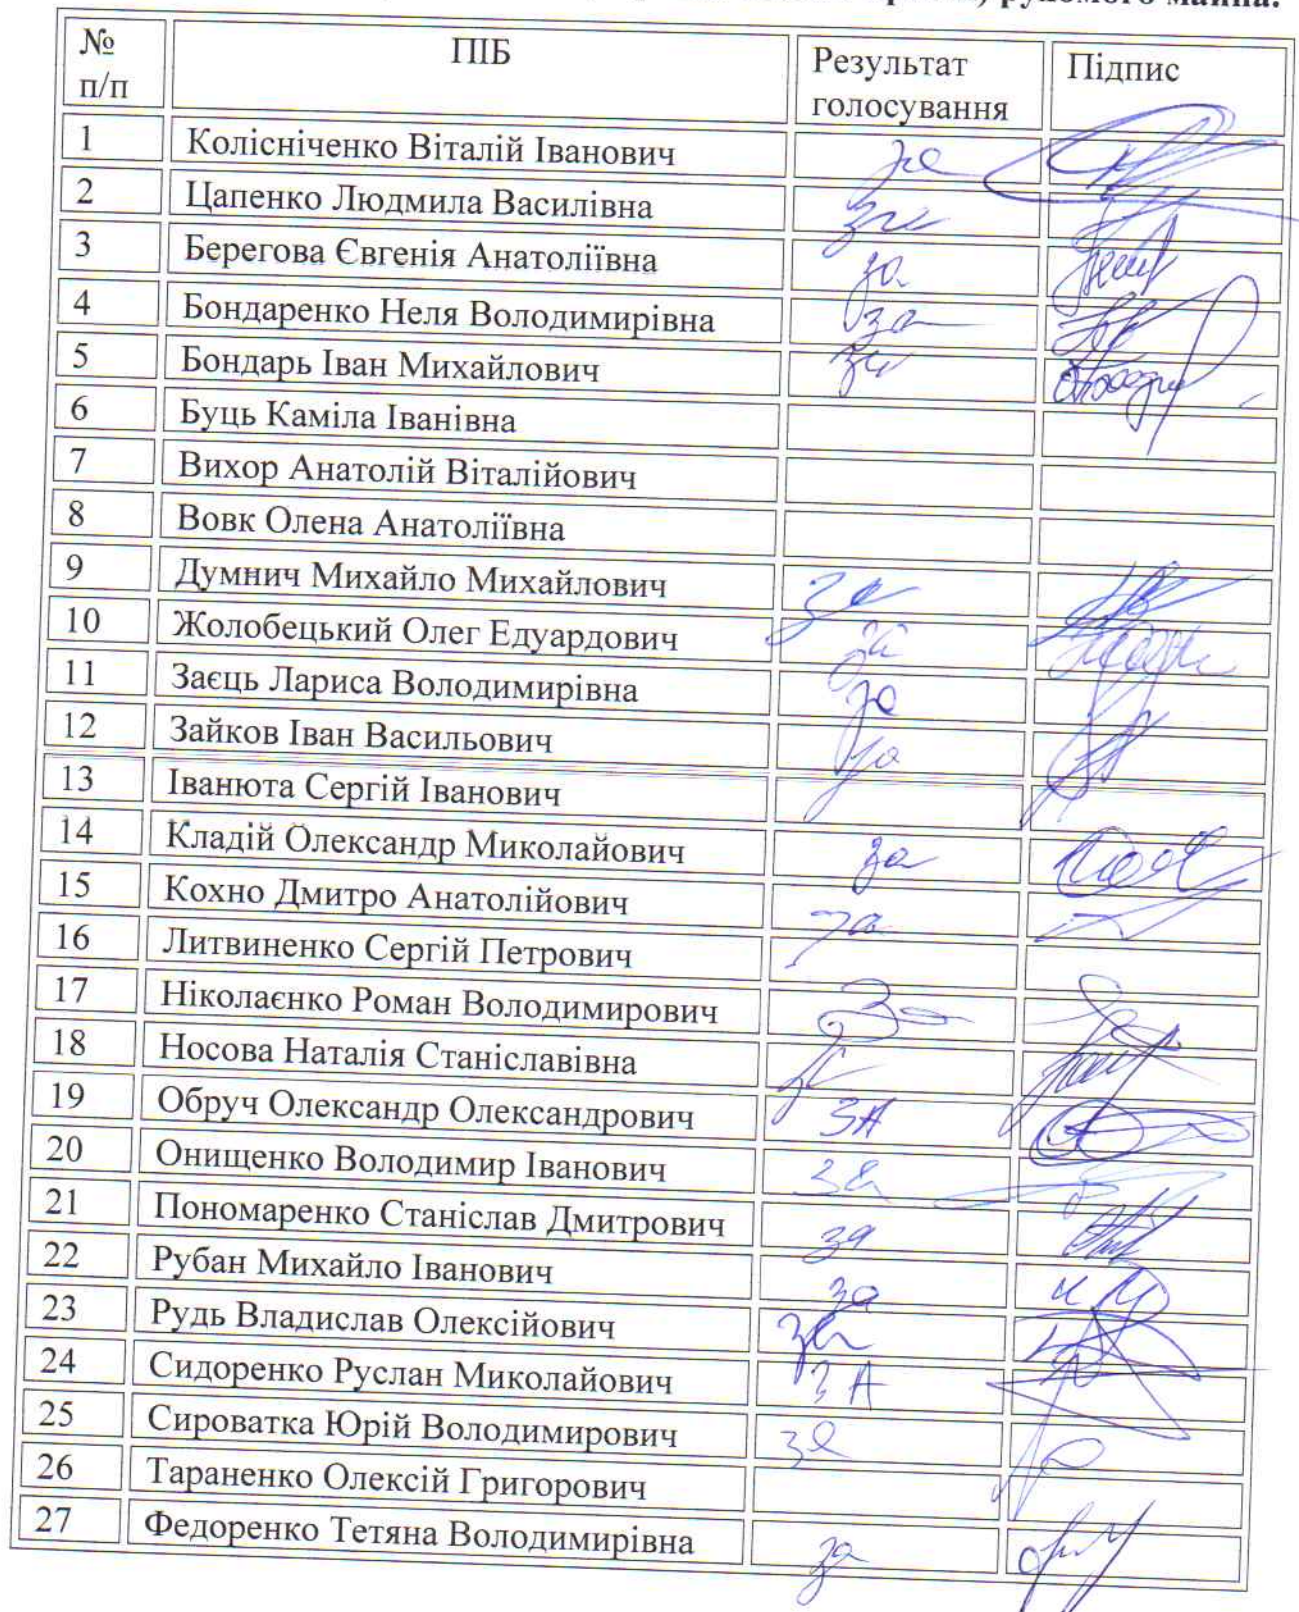 рухомого майна.
№ п/п ПІБ Результат голосування Підпис
1 Колісніченко Віталій Іванович за
2 Цапенко Людмила Василівна за
3 Берегова Євгенія Анатоліївна за
4 Бондаренко Неля Володимирівна за
5 Бондарь Іван Михайлович за
6 Буць Каміла Іванівна
7 Вихор Анатолій Віталійович
8 Вовк Олена Анатоліївна
9 Думнич Михайло Михайлович за
10 Жолобецький Олег Едуардович за
11 Заєць Лариса Володимирівна за
12 Зайков Іван Васильович за
13 Іванюта Сергій Іванович
14 Кладій Олександр Миколайович за
15 Кохно Дмитро Анатолійович за
16 Литвиненко Сергій Петрович
17 Ніколаєнко Роман Володимирович За
18 Носова Наталія Станіславівна за
19 Обруч Олександр Олександрович ЗА
20 Онищенко Володимир Іванович за
21 Пономаренко Станіслав Дмитрович за
22 Рубан Михайло Іванович за
23 Рудь Владислав Олексійович за
24 Сидоренко Руслан Миколайович ЗА
25 Сироватка Юрій Володимирович за
26 Тараненко Олексій Григорович
27 Федоренко Тетяна Володимирівна за